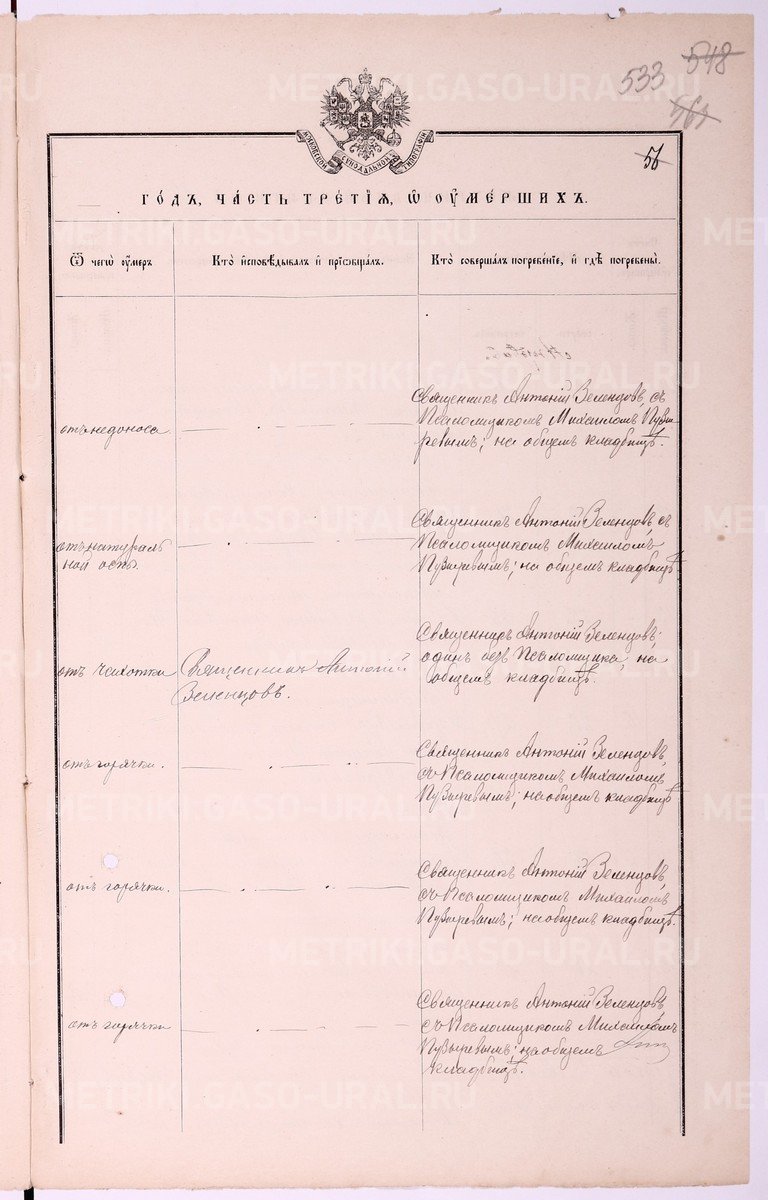 533 548
561
МОСКОВСКОЙ СѴНОДАЛЬНОЙ ТИПОГРАФІИ
56
ГО́ДЪ, ЧА́СТЬ ТРЕ́ТІѦ, Ѡ҆ ОУ҆МЕ́РШИХЪ.
Ѿ чегѡ̀ оу҆́меръ
Кто̀ и҆сповѣ́дывалъ и҆ прїѡбща́лъ.
Кто̀ соверша́лъ погребе́нїе, и҆ гдѣ̀ погребены̀.
отъ недоноса
Священникъ Антоній Зеленцовъ, съ
Псаломщикомъ Михаиломъ Пузы-
ревымъ; на общемъ кладбищѣ.
отъ натураль
ной оспы.
Священникъ Антоній Зеленцовъ, съ
Псаломщикомъ Михаиломъ
Пузыревымъ; на общемъ кладбищѣ
отъ чахотки
Священникъ Антоній
Зеленцовъ.
Священникъ Антоній Зеленцовъ
одинъ безъ Псаломщика, на
общемъ кладбищѣ.
отъ горячки.
Священникъ Антоній Зеленцовъ,
съ Псаломщикомъ Михаиломъ
Пузыревымъ; на общемъ кладбищѣ
отъ горячки.
Священникъ Антоній Зеленцовъ,
съ Псаломщикомъ Михаиломъ
Пузыревымъ; на общемъ кладбищѣ.
отъ горячки
Священникъ Антоній Зеленцовъ
съ Псаломщикомъ Михаиломъ
Пузыревымъ; на общемъ
кладбищѣ.
METRIKI.GASO-URAL.RU